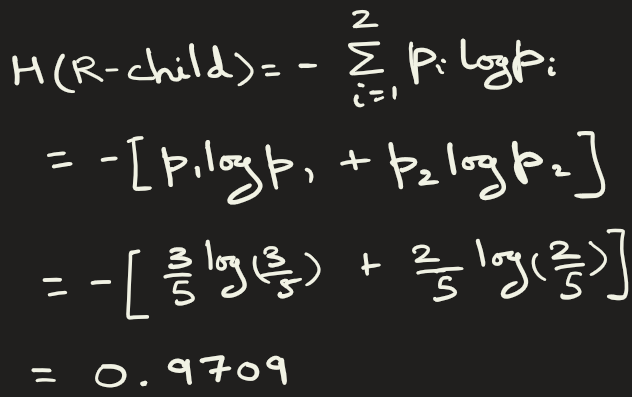 H(R-child) = - 2 Σ i=1 pi log pi
= -[p1 log p1 + p2 log p2]
= -[3/5 log(3/5) + 2/5 log(2/5)]
= 0.9709